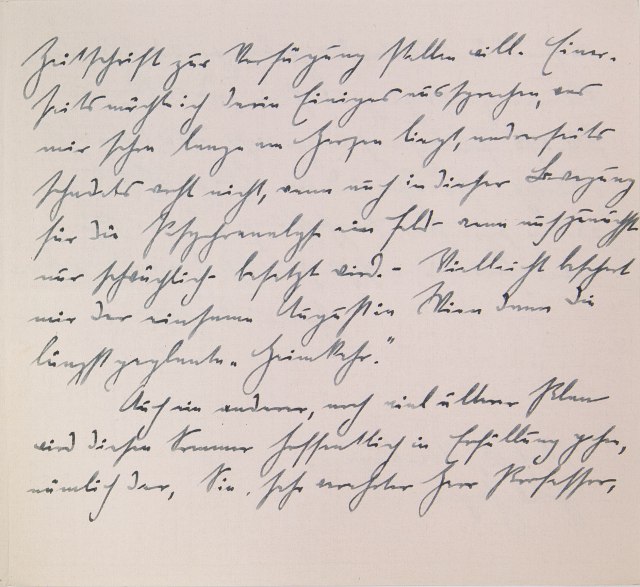 Zeitschrift zur Verfügung stellen will. Einer-
seits möchte ich darin Einiges aussprechen, was
mir schon lange am Herzen liegt, anderseits
schadets wohl nicht, wenn auch in dieser Bewegung
für die Psychoanalyse ein Feld – wenn auch zunächst
nur schwächlich – besetzt wird. – Vielleicht beschert
mir der einsame August in Wien dann die
längst geplante „Heimkehr."
Auch ein anderer, noch viel älterer Plan
wird diesen Sommer hoffentlich in Erfüllung gehen,
nämlich der, Sie, sehr verehrter Herr Professor,